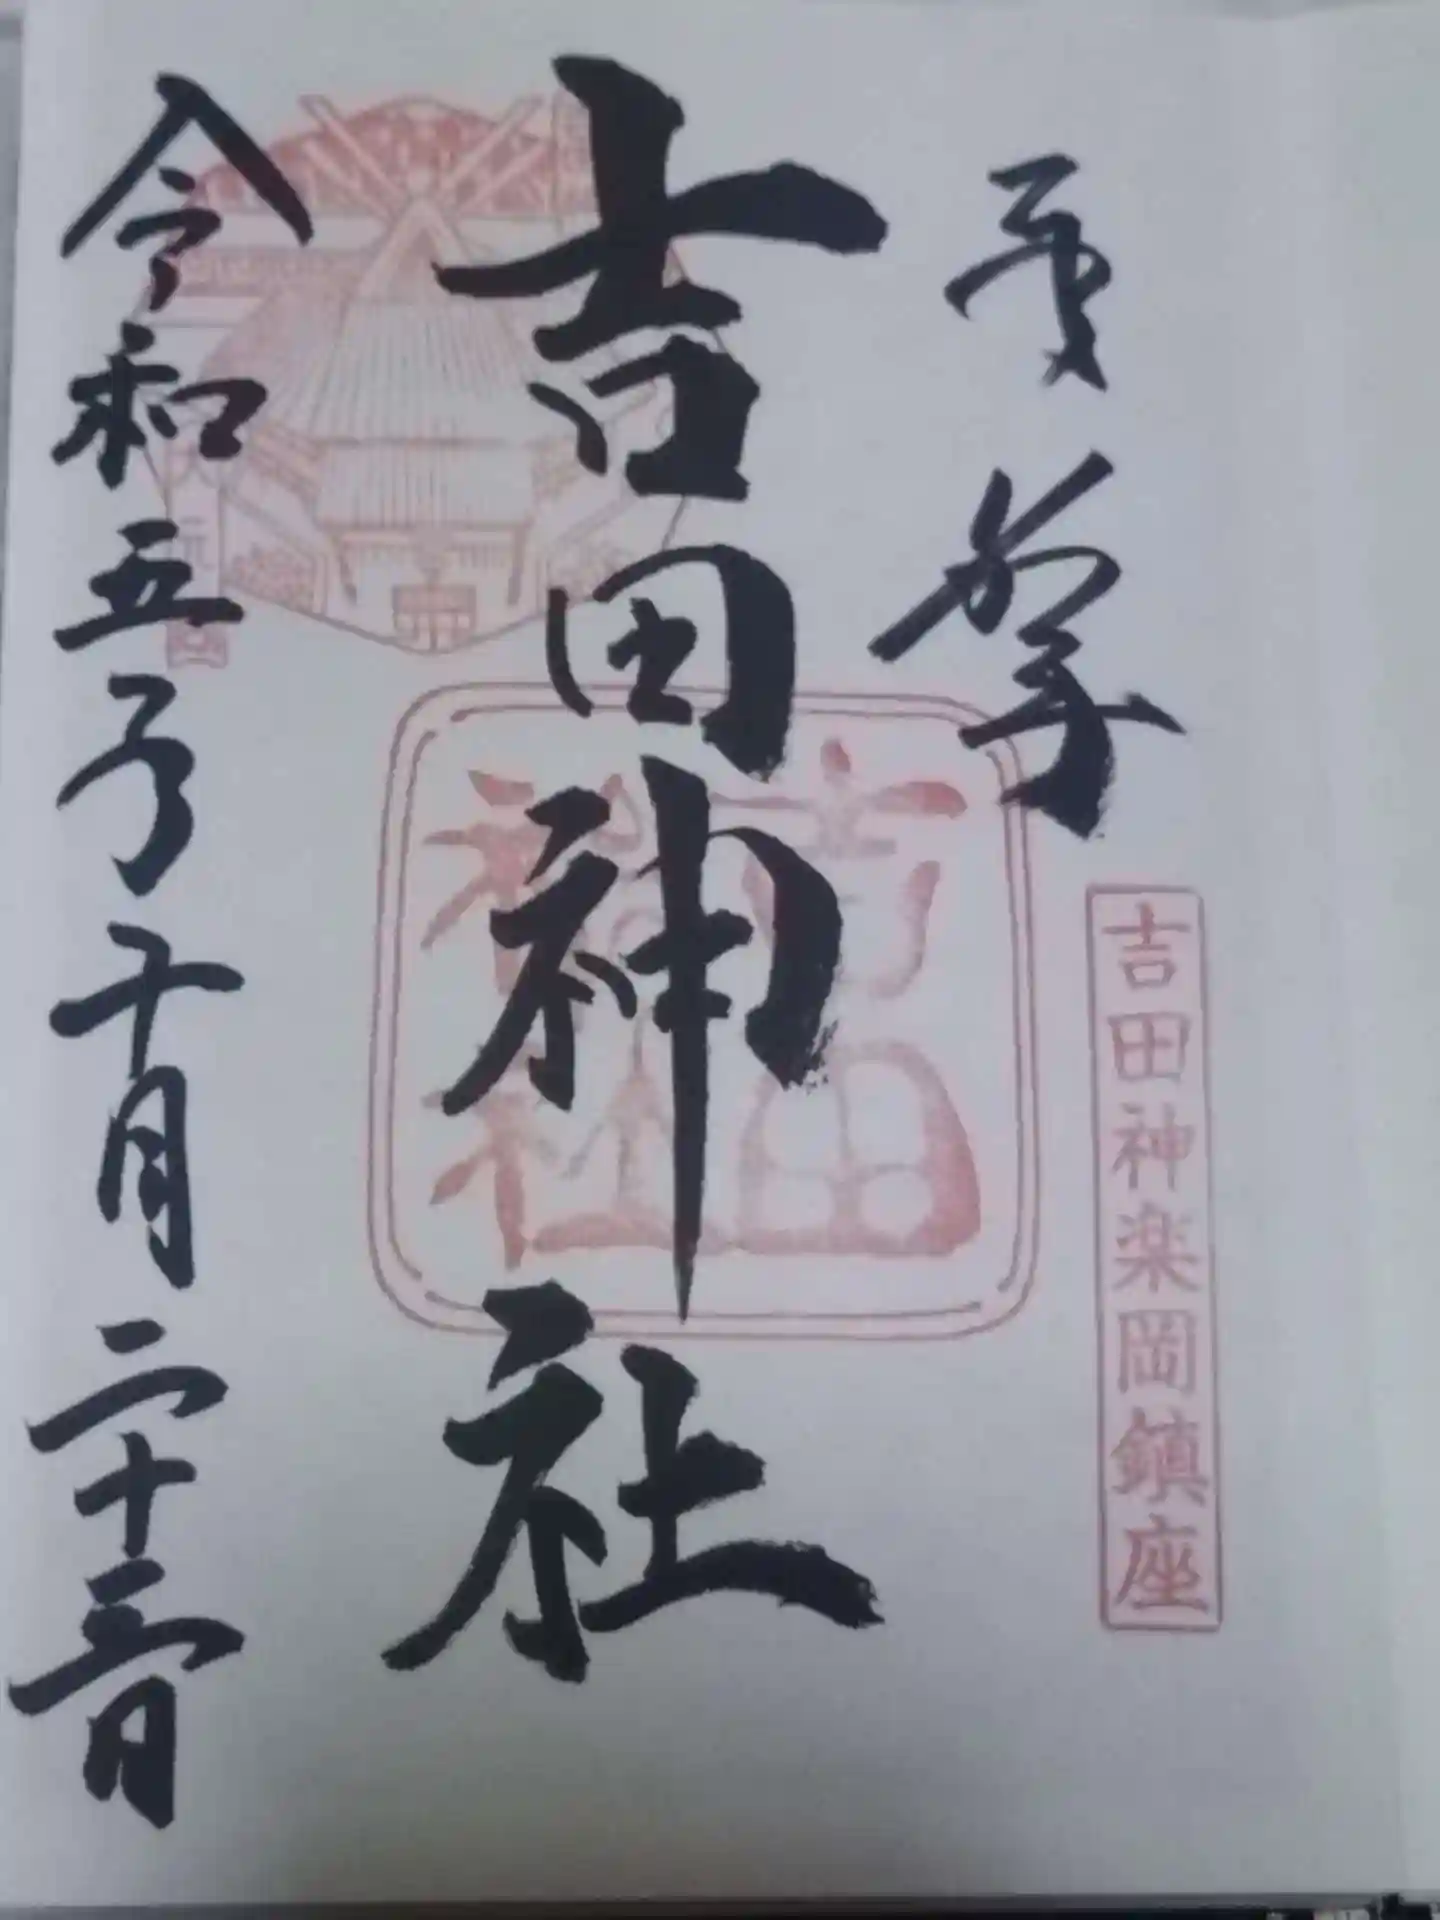 奉拝
吉田神楽岡鎮座
吉田神社
吉田神社
令和五年十月二十三日